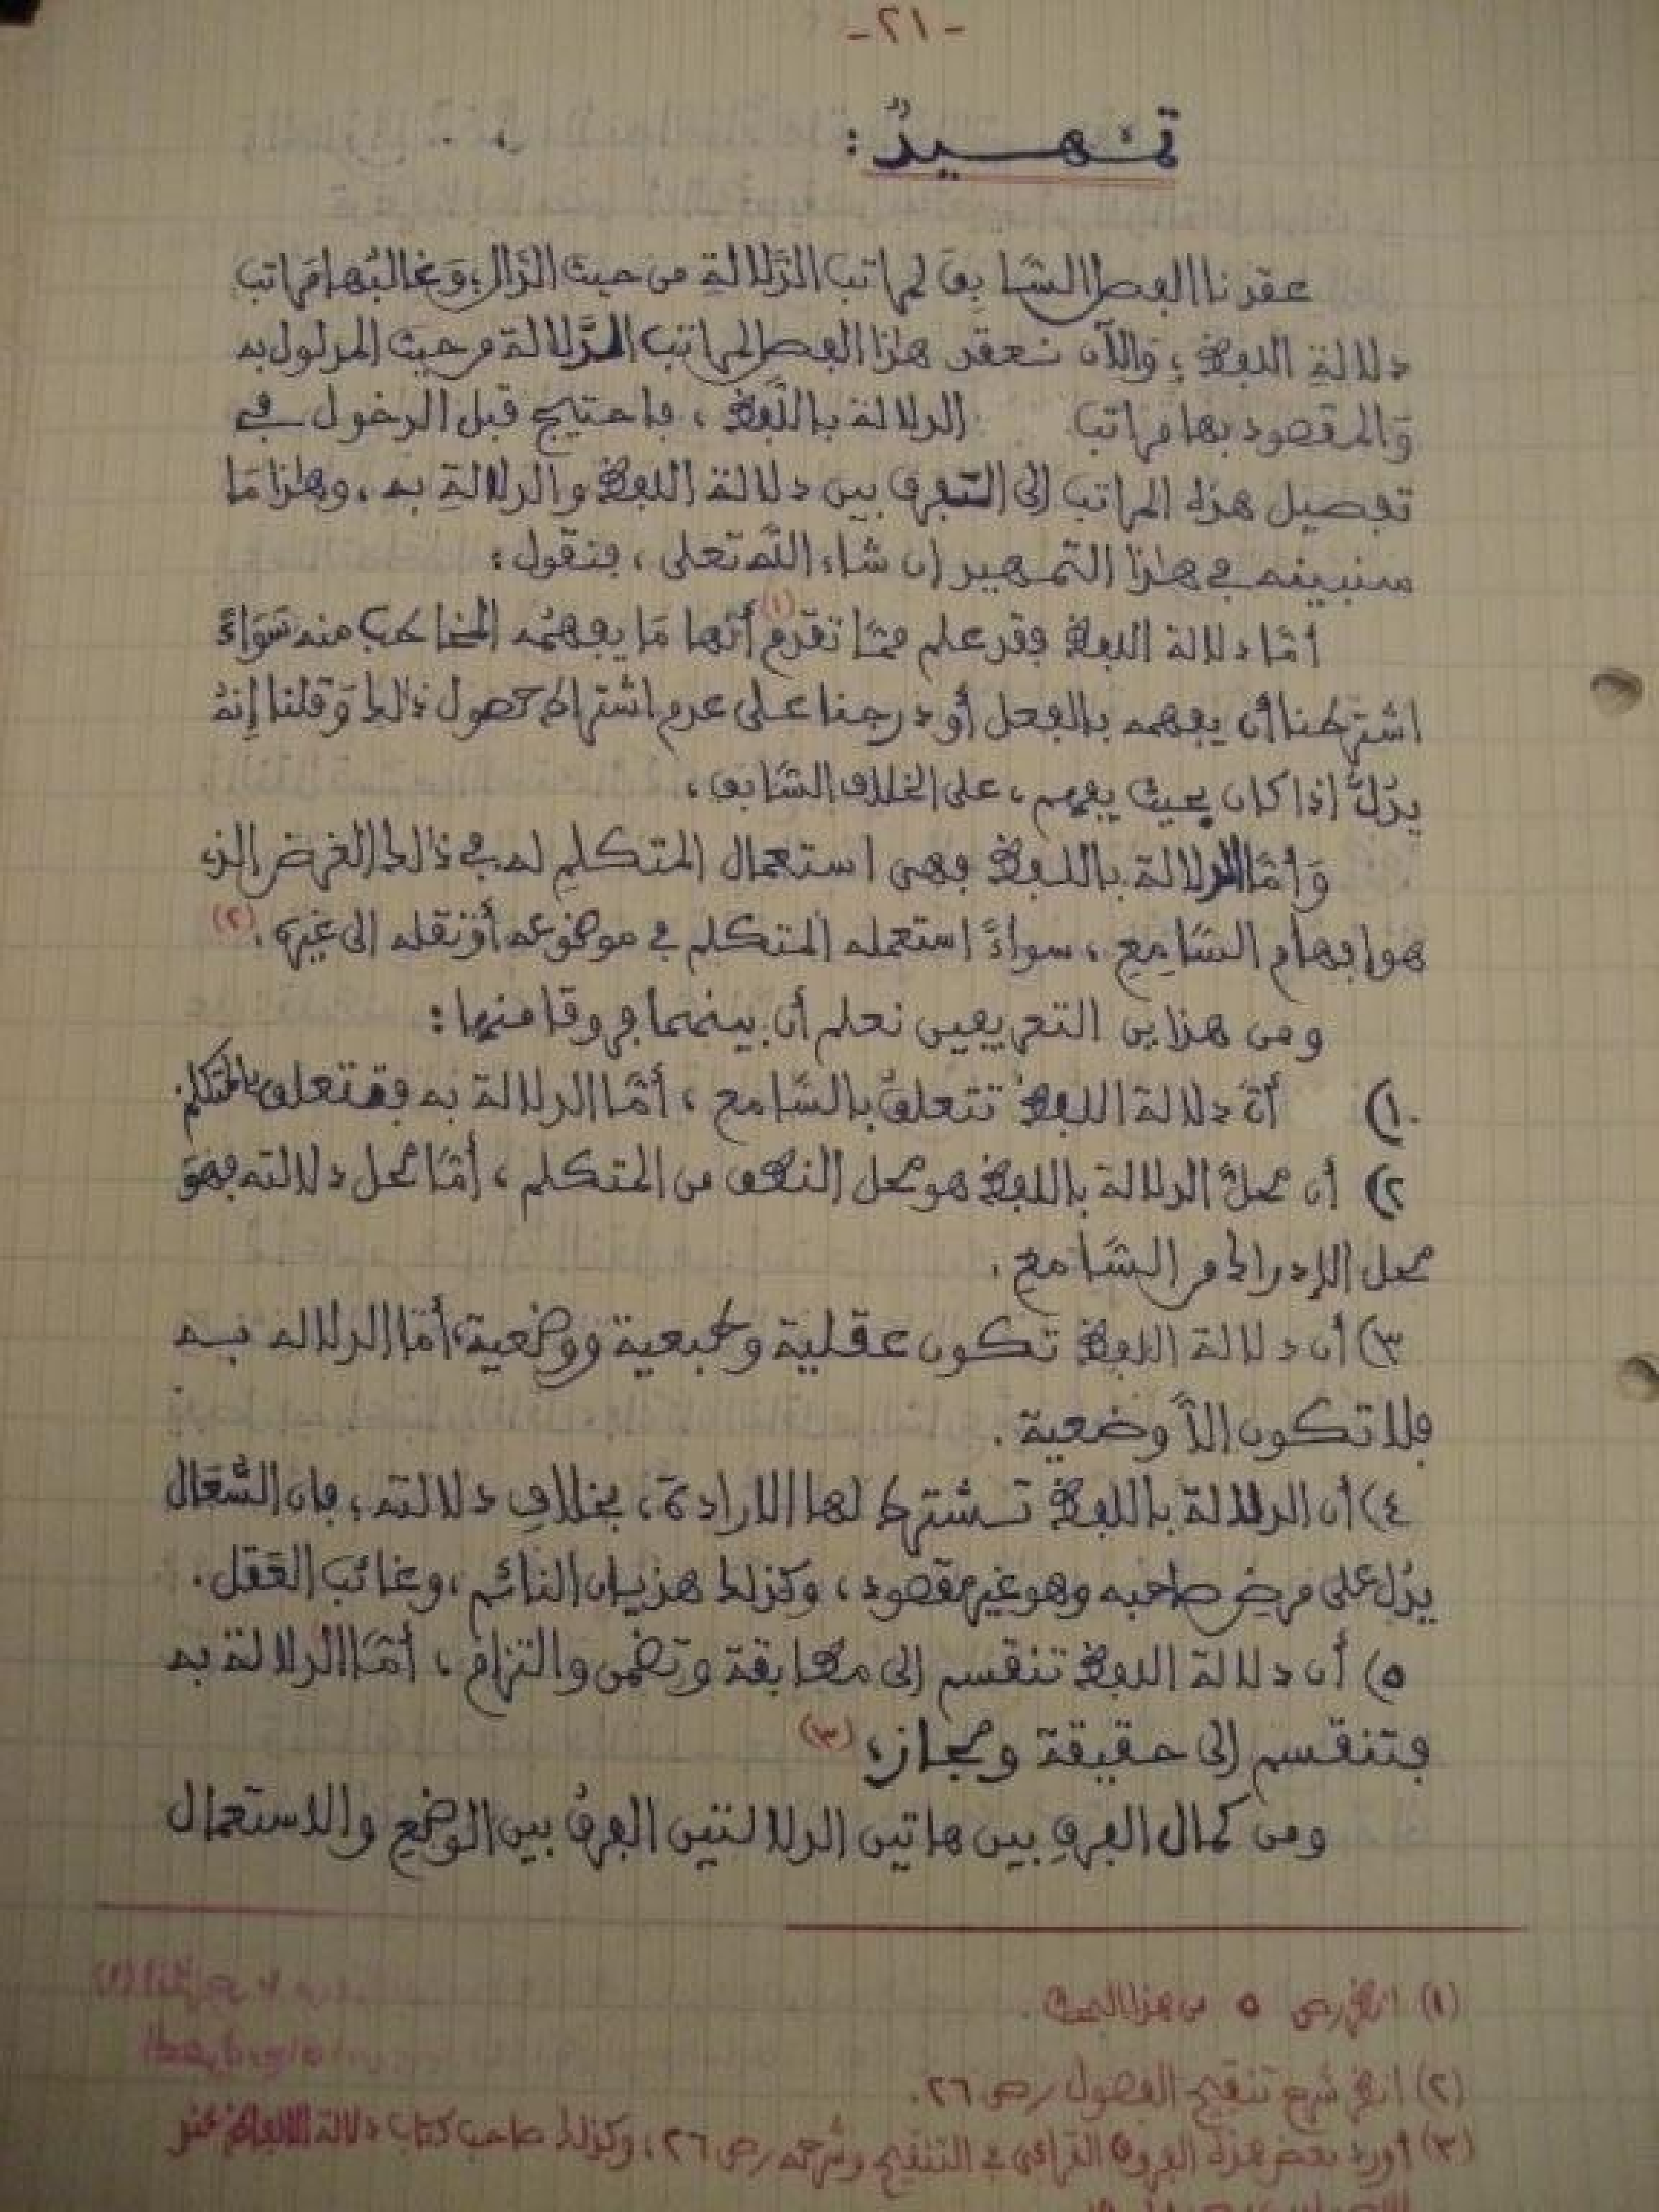 -٢١-
تمهيدٌ:
عقدنا الفصل السَّابق لمراتب الدَّلالة من حيث الدَّال، وَغالبُها مَراتب
دلالةِ اللفظ؛ وَالآن نعقد هذا الفصل لمراتب الدَّلالة من حيث المدلول به
وَالمقصود بها مراتب الدلالة باللَّفظ، فاحتيج قبل الدخول في
تفصيل هذه المراتب إلى التفريق بين دلالة اللفظ والدلالةِ به، وهذا مَا
سنبينه في هذا التَّمهيد إن شاء اللَّه تعلى، فنقول:
أمَّا دلالة اللفظ فقد علم ممَّا تقدم (١) أنَّها مَا يفهمُه المخاطب منه سَوَاءً
اشترطنا أن يفهمه بالفعل أو درجنا على عدم اشتراط حصول ذلك وَقلنا إنهُ
يدُلُّ إذا كان بحيث يفهم، على الخلاف السَّابق،
وَأمَّا الدلالة باللفظ فهي استعمال المتكلمِ له في ذالك الغرض الذي
هو إفهام السَّامِعِ، سواءً استعمله المتكلم في موضوعه أوْ نقله إلى غيره. (٢)
ومن هذاين التعريفين نعلم أن بينهما فروقا منها:
١) أنَّ دلالة اللفظ تتعلقُ بالسَّامع، أمَّا الدلالة به فتتعلق بالمتكلم.
٢) أن محلَّ الدلالة باللفظ هو محل النطق من المتكلم، أمَّا محل دلالته فهوَ
محل الإدراك من السَّامع.
٣) أن دلالة اللفظ تكون عقلية وطبعية ووضعية، أمَّا الدلاله بــه
فلا تكون إلاَّ وضعية.
٤) أن الدلالة باللفظ تـشترط لها الارادة، بخلافِ دلالته، فإن السُّعَال
يدُل على مرضِ صاحبه وهو غير مقصود، وكذلك هذيان النائم، وغائب العَقل.
٥) أن دلالة اللفظ تنقسم إلى مطابقة وتضمن والتزام، أمَّا الدلالة به
فتنقسم إلى حقيقة ومجاز، (٣)
ومن كمال الفرقِ بين هاتين الدلالتين الفرقُ بين الوضعِ والاستعمال
(١) انظر ص ٥ من هذا البحث.
(٢) انظر شرح تنقيح الفصول ص ٢٦.
(٣) أورد بعض هذه الفروق القرافي في التنقيح وشرحه ص ٢٦، وكذلك صاحب كتاب دلالة الالفاظ عند